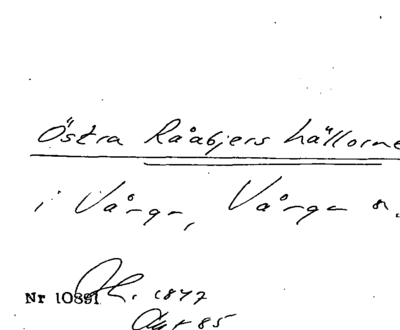 Östra Råabjers hällorne
i Vånga, Vånga s.
Nr 10891
1847
85